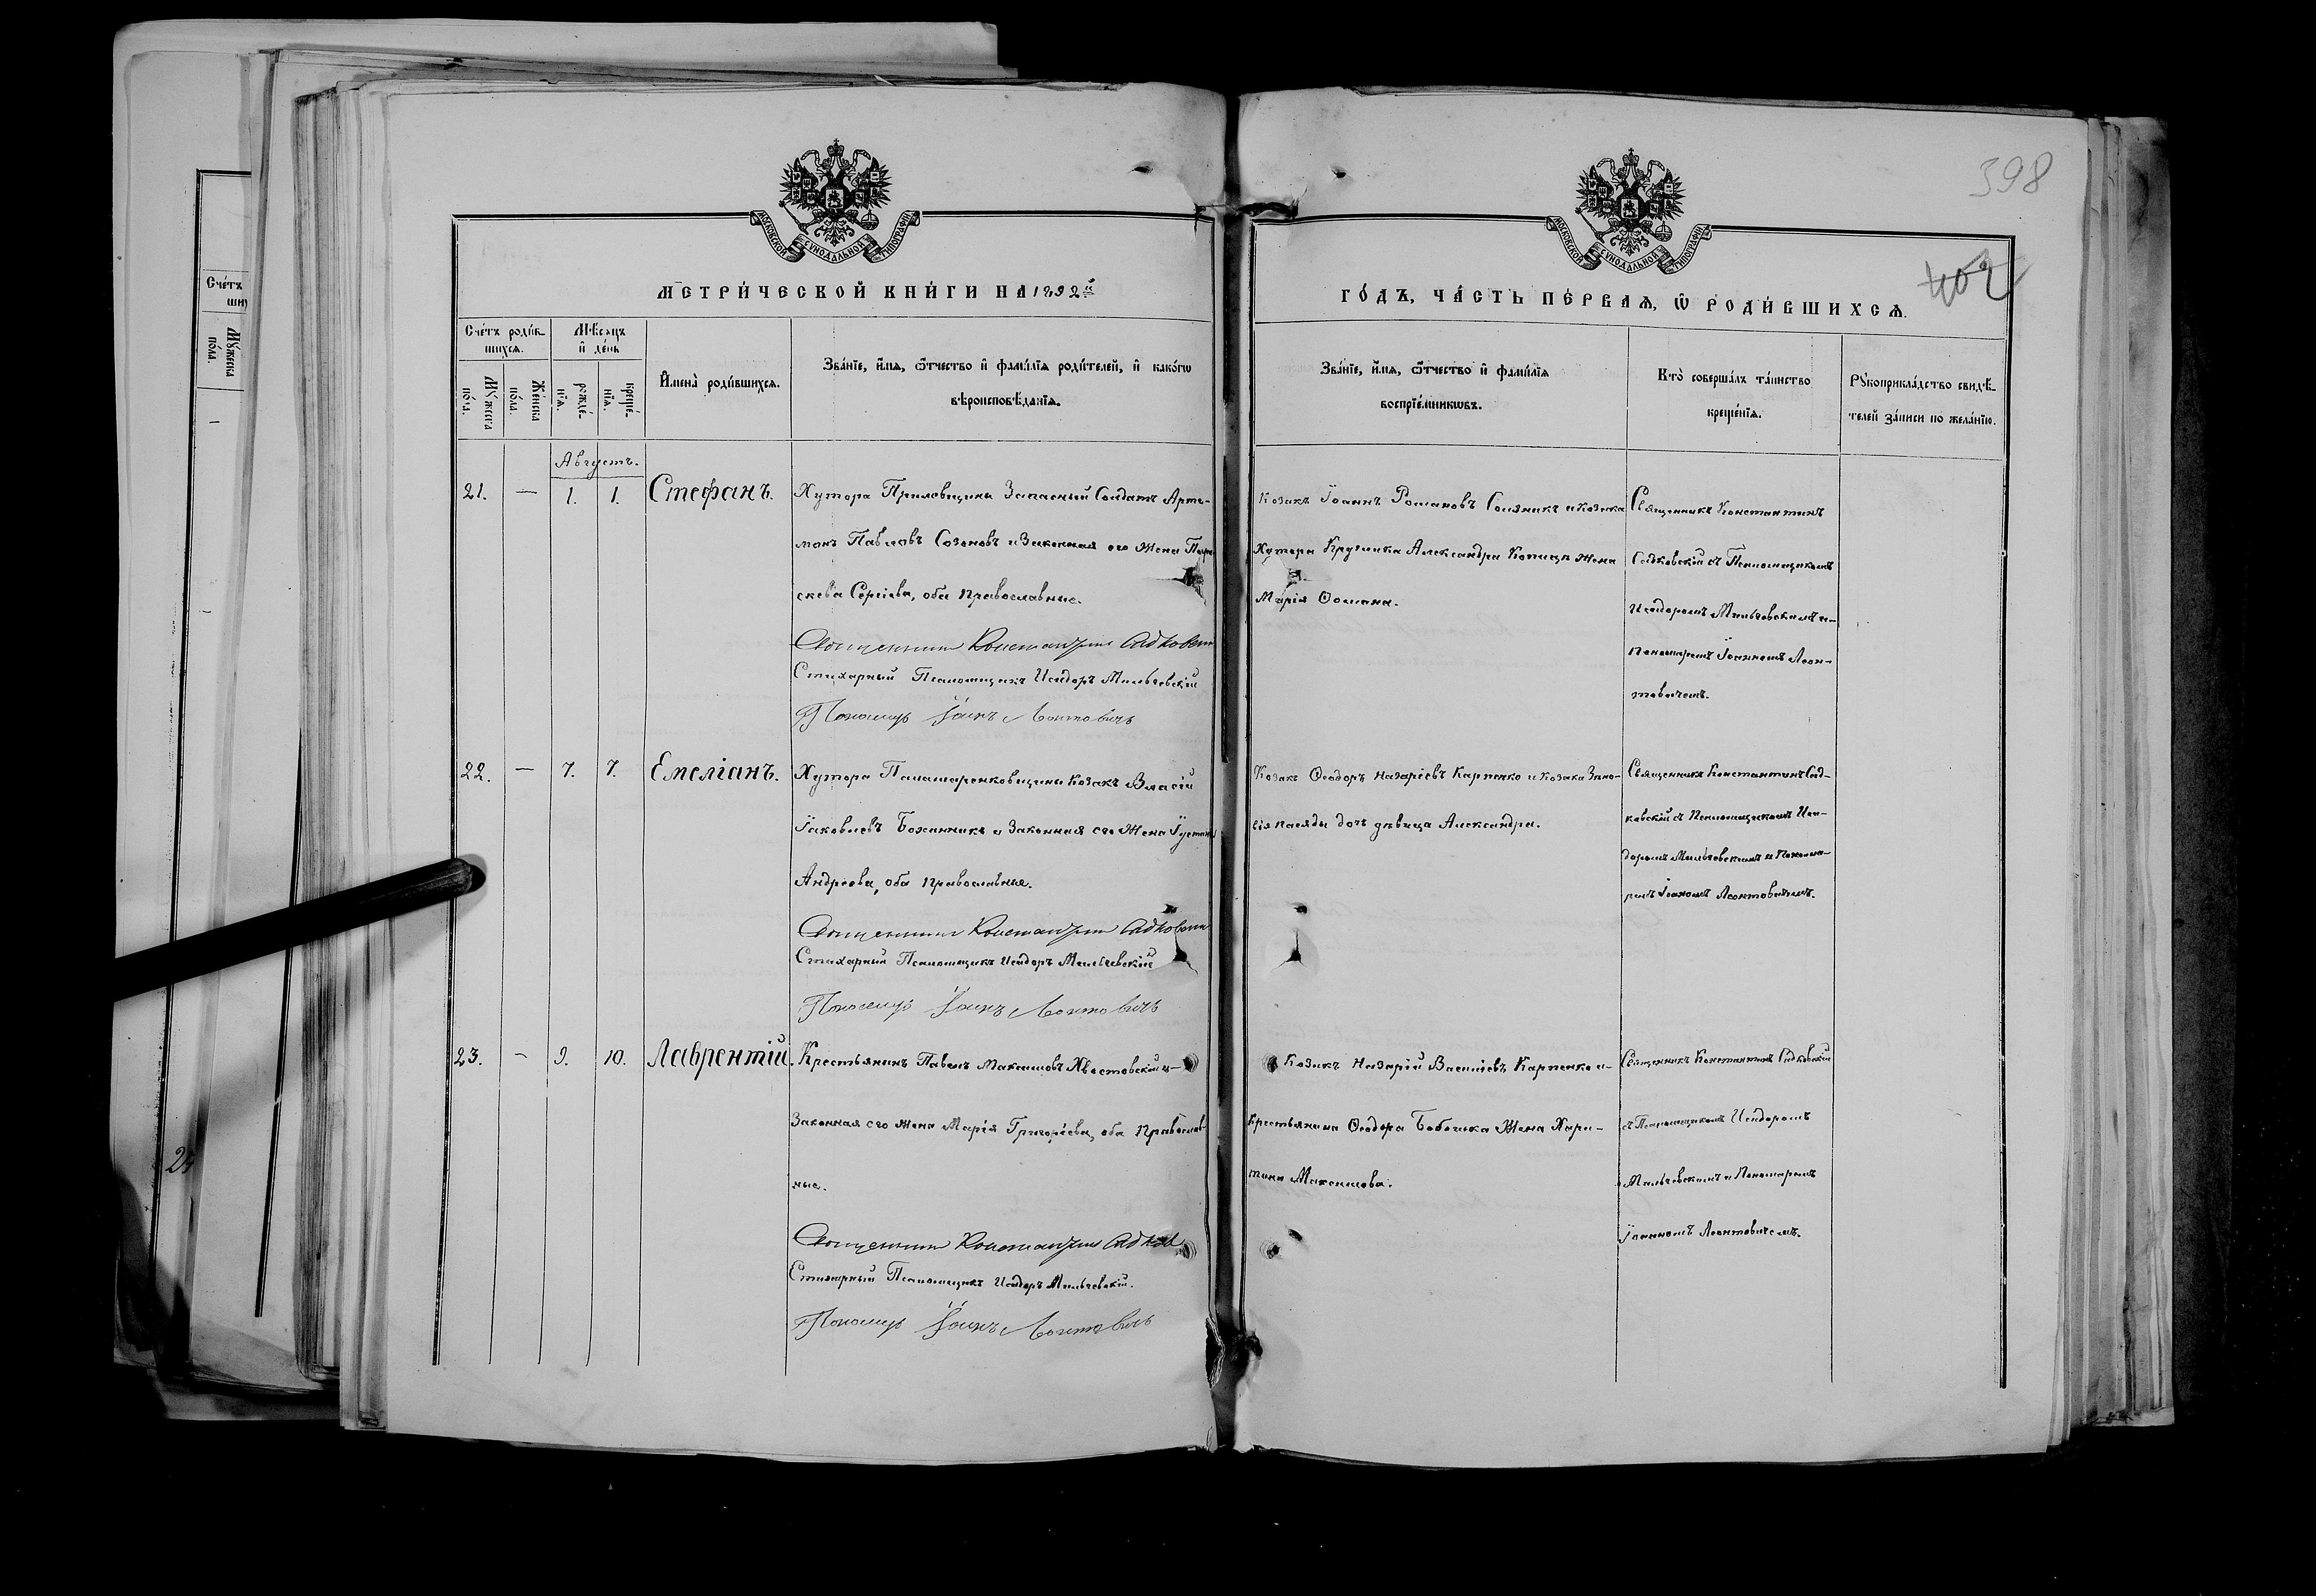 398
402
МОСКОВСКОЙ СѴНОДАЛЬНОЙ ТИПОГРАФІИ
МОСКОВСКОЙ СѴНОДАЛЬНОЙ ТИПОГРАФІИ
МЕТРИ́ЧЕСКОЙ КНИ́ГИ НА 1892й
ГО́ДЪ, ЧА́СТЬ ПЕ́РВАѦ, Ѡ҆ РОДИ́ВШИХСѦ.
Сче́тъ роди́в-
шихсѧ.
Мѣ́сѧцъ
и҆ де́нь
Мꙋ́жеска
по́ла.
Же́нска
по́ла.
рожде́-
нїѧ.
креще́-
нїѧ.
И҆мена̀ роди́вшихсѧ.
Зва́нїе, и҆́мѧ, ѻ҆́тчество и҆ фамѵ́лїѧ роди́телей, и҆ како́гѡ
вѣроисповѣ́данїѧ.
Зва́нїе, и҆́мѧ, ѻ҆́тчество и҆ фамѵ́лїѧ
воспрїе́мникѡвъ.
Кто̀ соверша́лъ та́инство
креще́нїѧ.
Рꙋкоприкла́дство свидѣ́-
телей за́писи по жела́нїю.
Августъ.
21. — 1. 1. Стефанъ.
Хутора Запасный Солдатъ Арте-
монъ Павловъ Созоновъ и Законная его Жена Пара
скева Сергіева, оба Православные.
Священникъ Константинъ Садковскій
Стихарный Псаломщикъ Исидоръ Мильчевскій
Пономарь Іоаннъ Леонтовичъ
Козакъ Іоаннъ Романовъ Соляникъ и Козака
Хутора Кругляка Александра Копица Жена
Марія Фомина.
Священникъ Константинъ
Садковскій съ Псаломщикомъ
Исидоромъ Мильчевскимъ и-
Пономаремъ Іоанномъ Леон-
товичемъ.
22. — 7. 7. Емеліанъ.
Хутора Паламаренковщины Козакъ Власій
Іаковлевъ Боханникъ и Законная его Жена Іустина
Андреева, оба Православные.
Священникъ Константинъ Садковскій
Стихарный Псаломщикъ Исидоръ Мильчевскій
Пономарь Іоаннъ Леонтовичъ
Козакъ Ѳеодоръ Назаріевъ Карпенко и Козака Зино-
вія дочь дѣвица Александра.
Священникъ Константинъ Сад-
ковскій съ Псаломщикомъ Иси-
доромъ Мильчевскимъ и Понома-
ремъ Іоаномъ Леонтовичемъ.
23. — 9. 10. Лаврентій.
Крестьянинъ Павелъ Максимовъ Хвостовскій и-
Законная его Жена Марія Григоріева, оба Православ
ные.
Священникъ Константинъ Садков
Стихарный Псаломщикъ Исидоръ Мильчевскій.
Пономарь Іоаннъ Леонтовичъ
Козакъ Назарій Василіевъ Карпенко и-
Крестьянина Ѳеодора Бобошка Жена Хари-
тина Максимова.
Священникъ Константинъ Садковскій
съ Псаломщикомъ Исидоромъ
Мильчевскимъ и Пономаремъ
Іоанномъ Леонтовичемъ.
Сче́тъ
Мꙋ́жеска
по́ла.